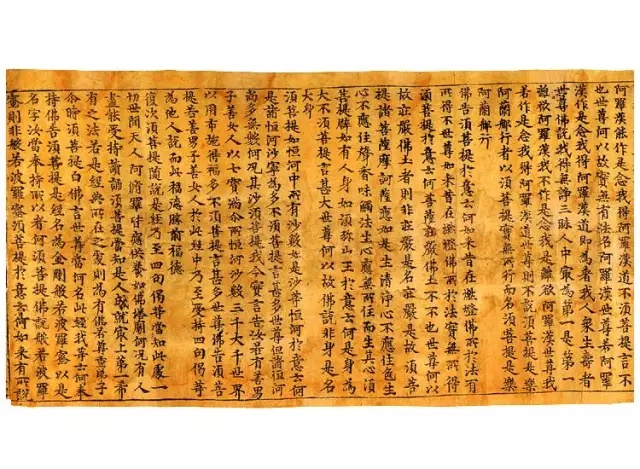 阿羅漢能作是念我得阿羅漢道不須菩提言不
也世尊何以故實無有法名阿羅漢世尊若阿羅
漢作是念我得阿羅漢道即為著我人眾生壽者
世尊佛說我得無諍三昧人中最為第一是第一
離欲阿羅漢我不作是念我是離欲阿羅漢世尊我
若作是念我得阿羅漢道世尊則不說須菩提是樂
阿蘭那行者以須菩提實無所行而名須菩提是樂
阿蘭那行
佛告須菩提於意云何如來昔在然燈佛所於法有
所得不世尊如來昔在然燈佛所於法實無所得
須菩提於意云何菩薩莊嚴佛土不不也世尊何以
故莊嚴佛土者則非莊嚴是名莊嚴是故須菩
提諸菩薩摩訶薩應如是生清淨心不應住色生
心不應住聲香味觸法生心應無所住而生其心須
菩提譬如有人身如須弥山王於意云何是身為
大不須菩提言甚大世尊何以故佛說非身是名
大身
須菩提如恒河中所有沙數如是沙等恒河於意云何
是諸恒河沙寧為多不須菩提言甚多世尊但諸恒河
尚多無數何況其沙須菩提我今實言告汝若有善男
子善女人以七寶滿尒所恒河沙數三千大千世界
以用布施得福多不須菩提言甚多世尊佛告須菩
提若善男子善女人於此經中乃至受持四句偈等
為他人說而此福德勝前福德
復次須菩提隨說是經乃至四句偈等當知此處一
切世間天人阿脩羅皆應供養如佛塔廟何況有人
盡能受持讀誦須菩提當知是人成就最上第一希
有之法若是經典所在之處則為有佛若尊重弟子
尒時須菩提白佛言世尊當何名此經我等云何奉
持佛告須菩提是經名為金剛般若波羅蜜以是
名字汝當奉持所以者何須菩提佛說般若波羅
蜜則非般若波羅蜜須菩提於意云何如來有所說